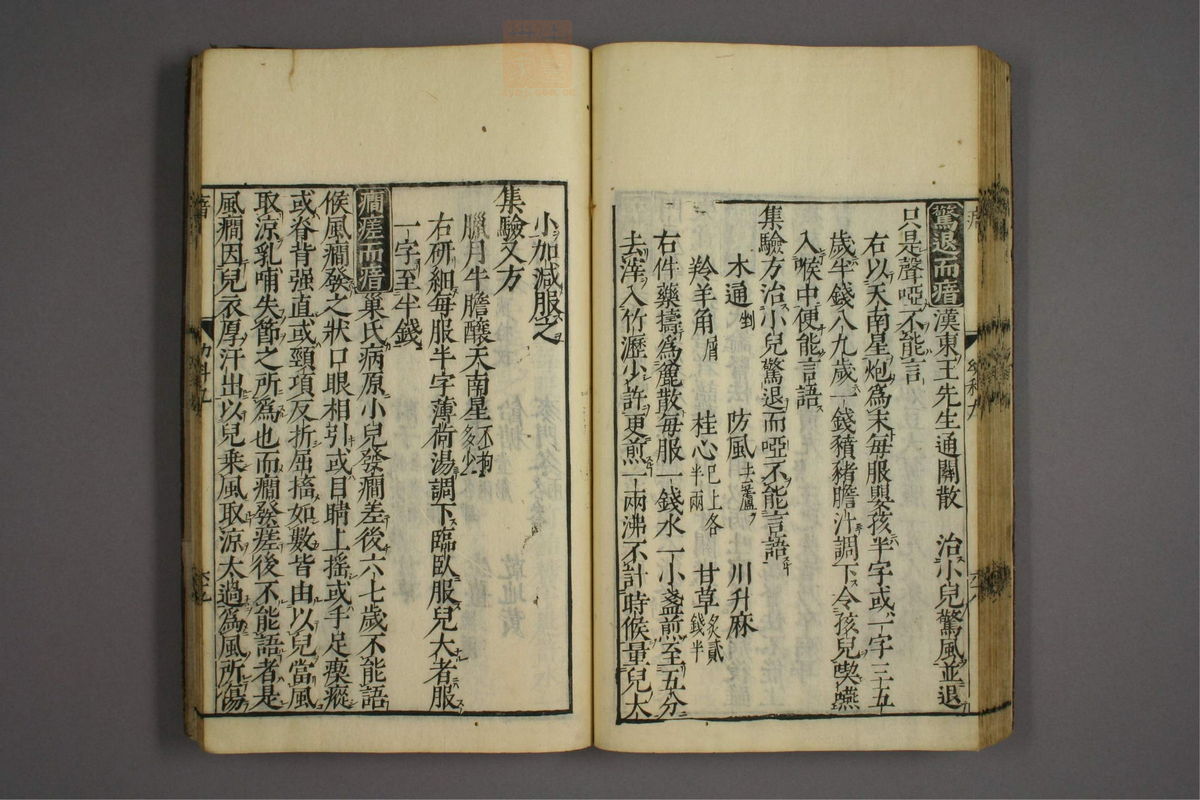 驚退而瘖漢東王先生通關散　治小兒驚風並退
只是聲啞不能言
右以天南星炮為末毎服嬰孩半字或一字三五
歲半錢八九歲一錢豶豬膽汁調下令孩兒喫嚥
入喉中便能言語
集驗方治小兒驚退而啞不能言語
木通剉　防風去蘆　川升麻
羚羊角屑　桂心已上各半兩　甘草炙貳錢半
右件藥擣為麄散毎服一錢水一小盞煎至五分
去滓入竹瀝少許更煎一兩沸不計時候量兒大
小加減服之
集驗又方
臘月牛膽釀天南星不拘多少
右研細毎服半字薄荷湯調下臨臥服兒大者服
一字至半錢
癇瘥而瘖巢氏病原小兒發癇差後六七歲不能語
候風癇發之狀口眼相引或目睛上搖或手足瘈瘲
或脊背强直或頸項反折屈指如數皆由以兒當風
取涼乳哺失節之所為也而癇發瘥後不能語者是
風癇因兒衣厚汗出以兒乗風取涼太過為風所傷